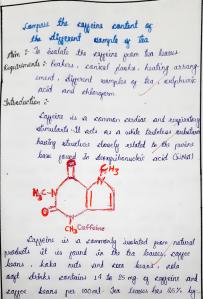 Compare the caffeine content of
the different sample of tea
Aim :- To isolate the caffeine from tea leaves.
Requirements :- Beakers, conical flasks, heating arrange-
ment, different samples of tea, sulphuric
acid and chloroform
Introduction :-
Caffeine is a common cardiac and respiratory
stimulants. It acts as a white tasteless substance
having structure closely related to the purine
base found in deoxyribonucleic acid (DNA)
O
CH3
N
H3C-N
O
N
CH3
Caffeine
Caffeine is a commonly isolated from natural
products it is found in the tea leaves, coffee
beans, kola nuts and cocoa beans, cola
soft drinks contains 14 to 25 mg of caffeine and
coffee beans per 100ml. Tea leaves has